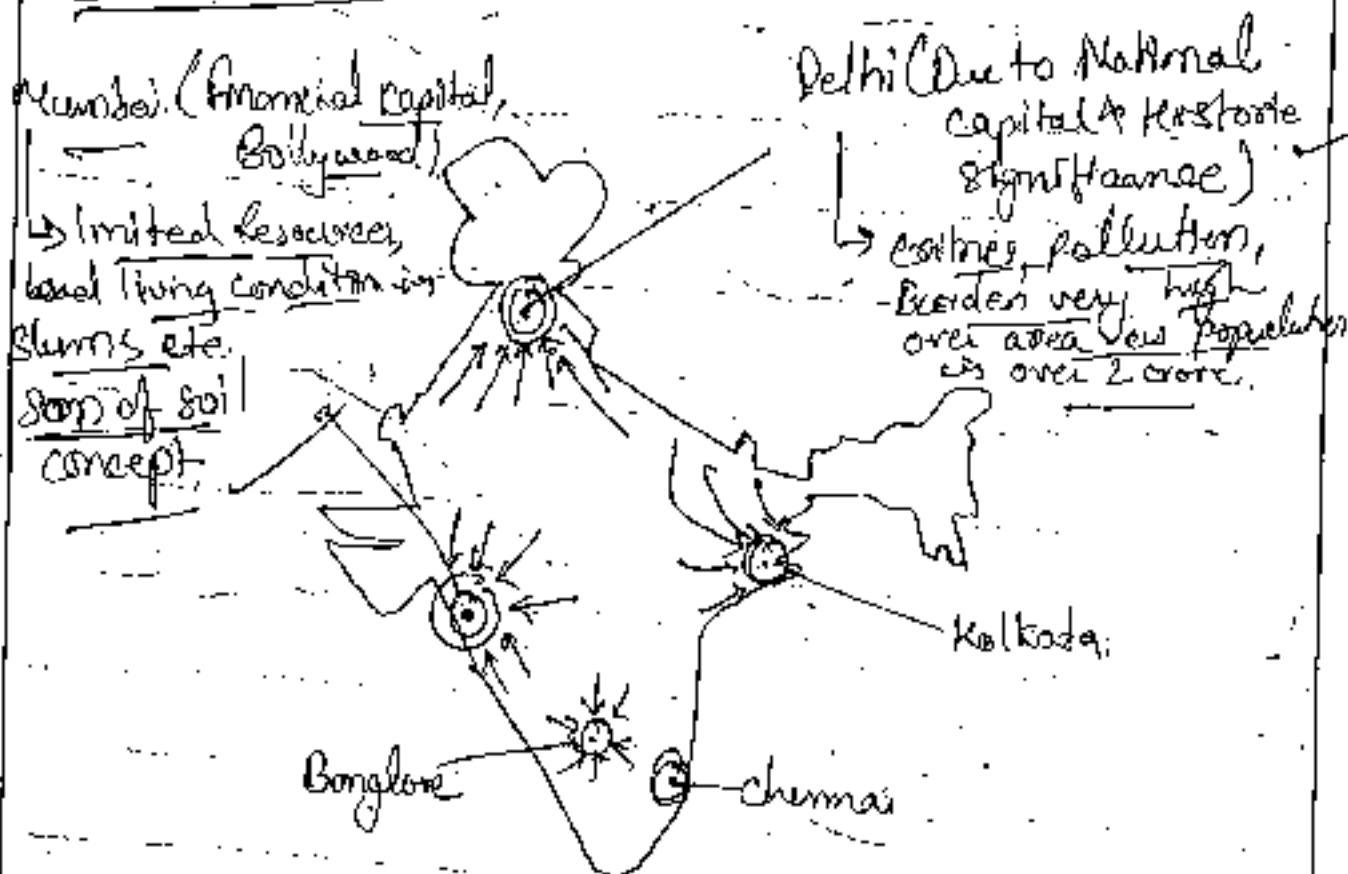 Mumbai (Financial capital,
Bollywood)
→ limited Resources,
bad living condition in
slums etc.
son of soil
concept
Delhi (Due to National
capital & Historic
significance)
→ crimes, pollution,
Burden very high
over area as population
is over 2 crore.
Kolkata
Banglore
Chennai